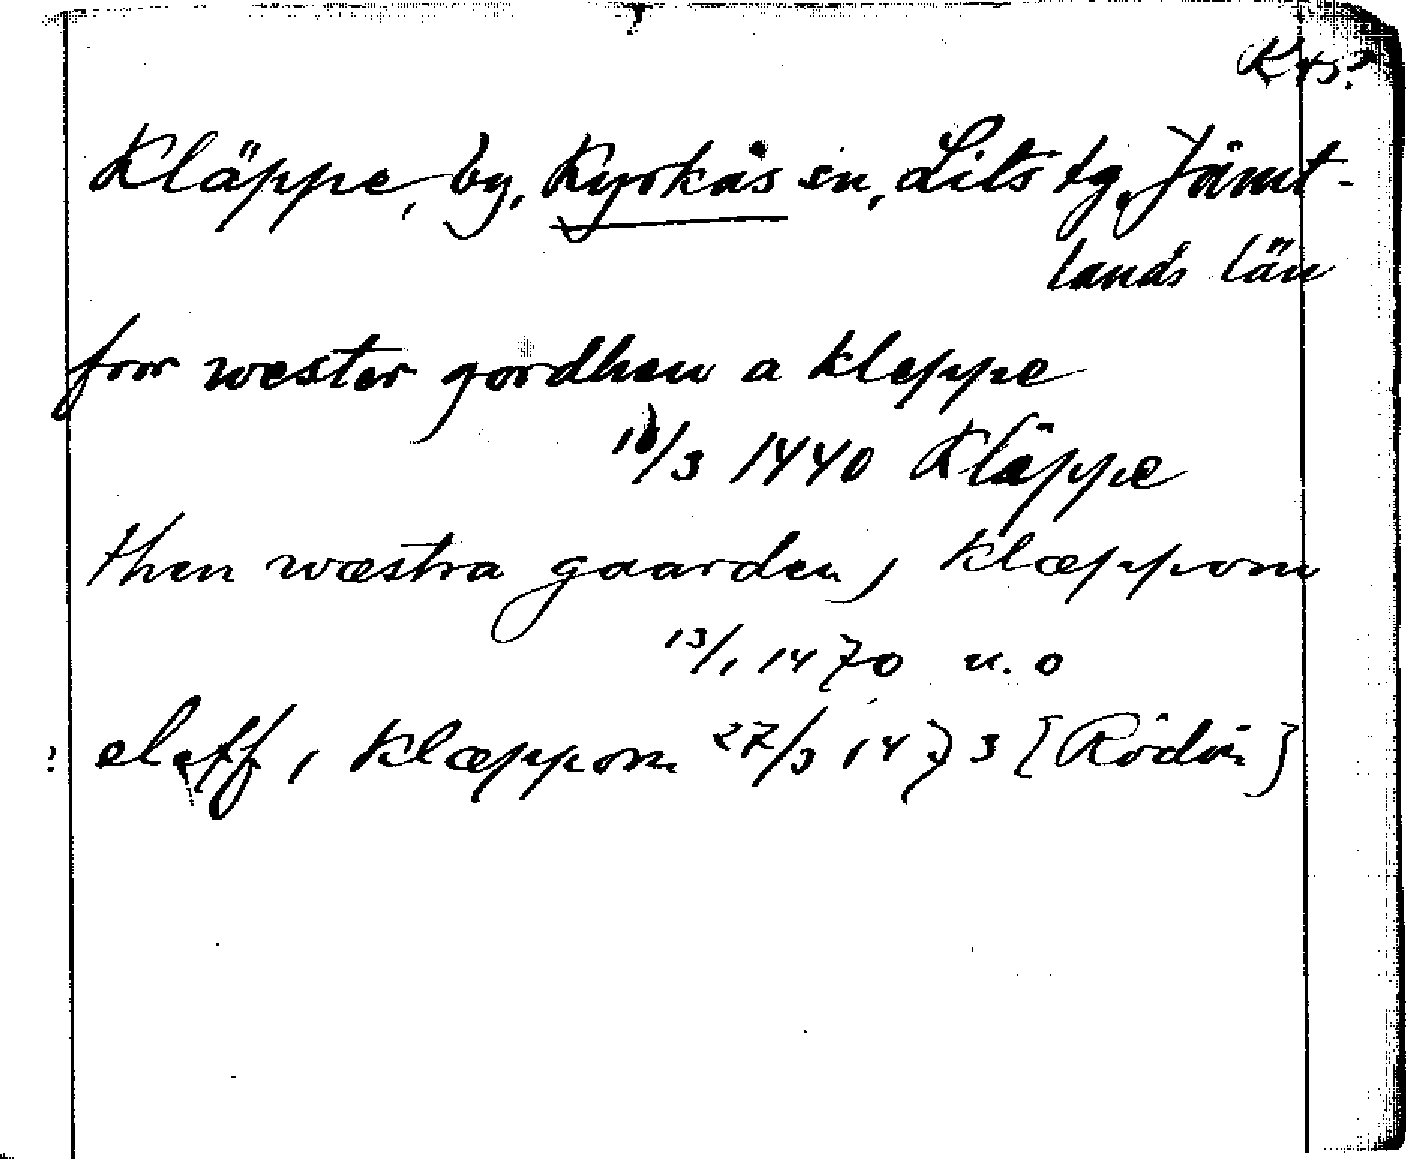 Kläppe, by, Kyrkås sn, Lits tg, Jämt-
lands län
fror wester gordhen a kleppe
/3 1440 Kläppe
then wæstra gaarden j klæppom
13/1 1470 u. o
: eleff i klæppom 27/3 1473 [Rödön]